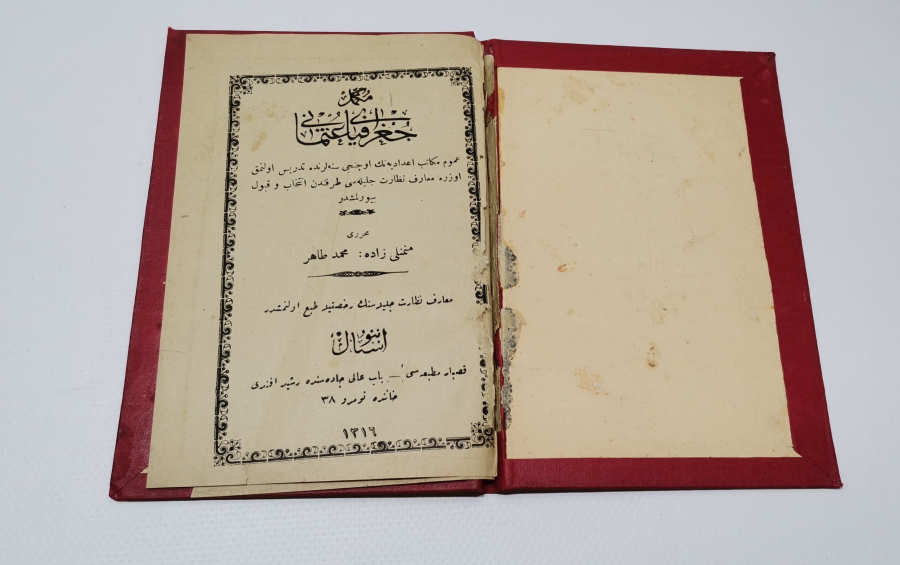 مكمل
جغرافياى عثمانى
عموم مكاتب اعداديه‌نك اوچنجى سنه‌لرنده تدريس اولنمق
اوزره معارف نظارت جليله‌سى طرفندن انتخاب و قبول
بيورلمشدر
محررى
منمنلى زاده : محمد طاهر
معارف نظارت جليله‌سنك رخصتيله طبع اولنمشدر
استانبول
قصبار مطبعه‌سى — باب عالى جاده‌سنده رشيد افندى
خاننده نومرو ٣٨
١٣١٦